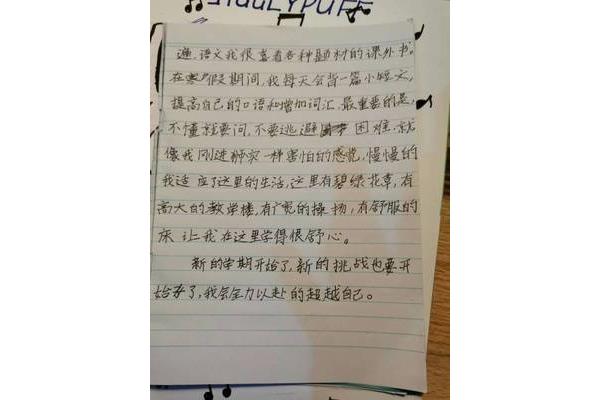 JIGGLYPUFF
遍,语文我很喜看各种题材的课外书。
在寒假期间,我每天会背一篇小短文,
提高自己的口语和增加词汇,最重要的是,
不懂就要问,不要逃避困难.就
像我刚进狮实一种害怕的感觉,慢慢的
我适应了这里的生活,这里有碧绿花草,有
高大的教学楼,有广宽的操扬,有舒服的
床让我在这里学得很舒心。
新的学期开始了,新的挑战也要开
始了,我会全力以赴的超越自己。